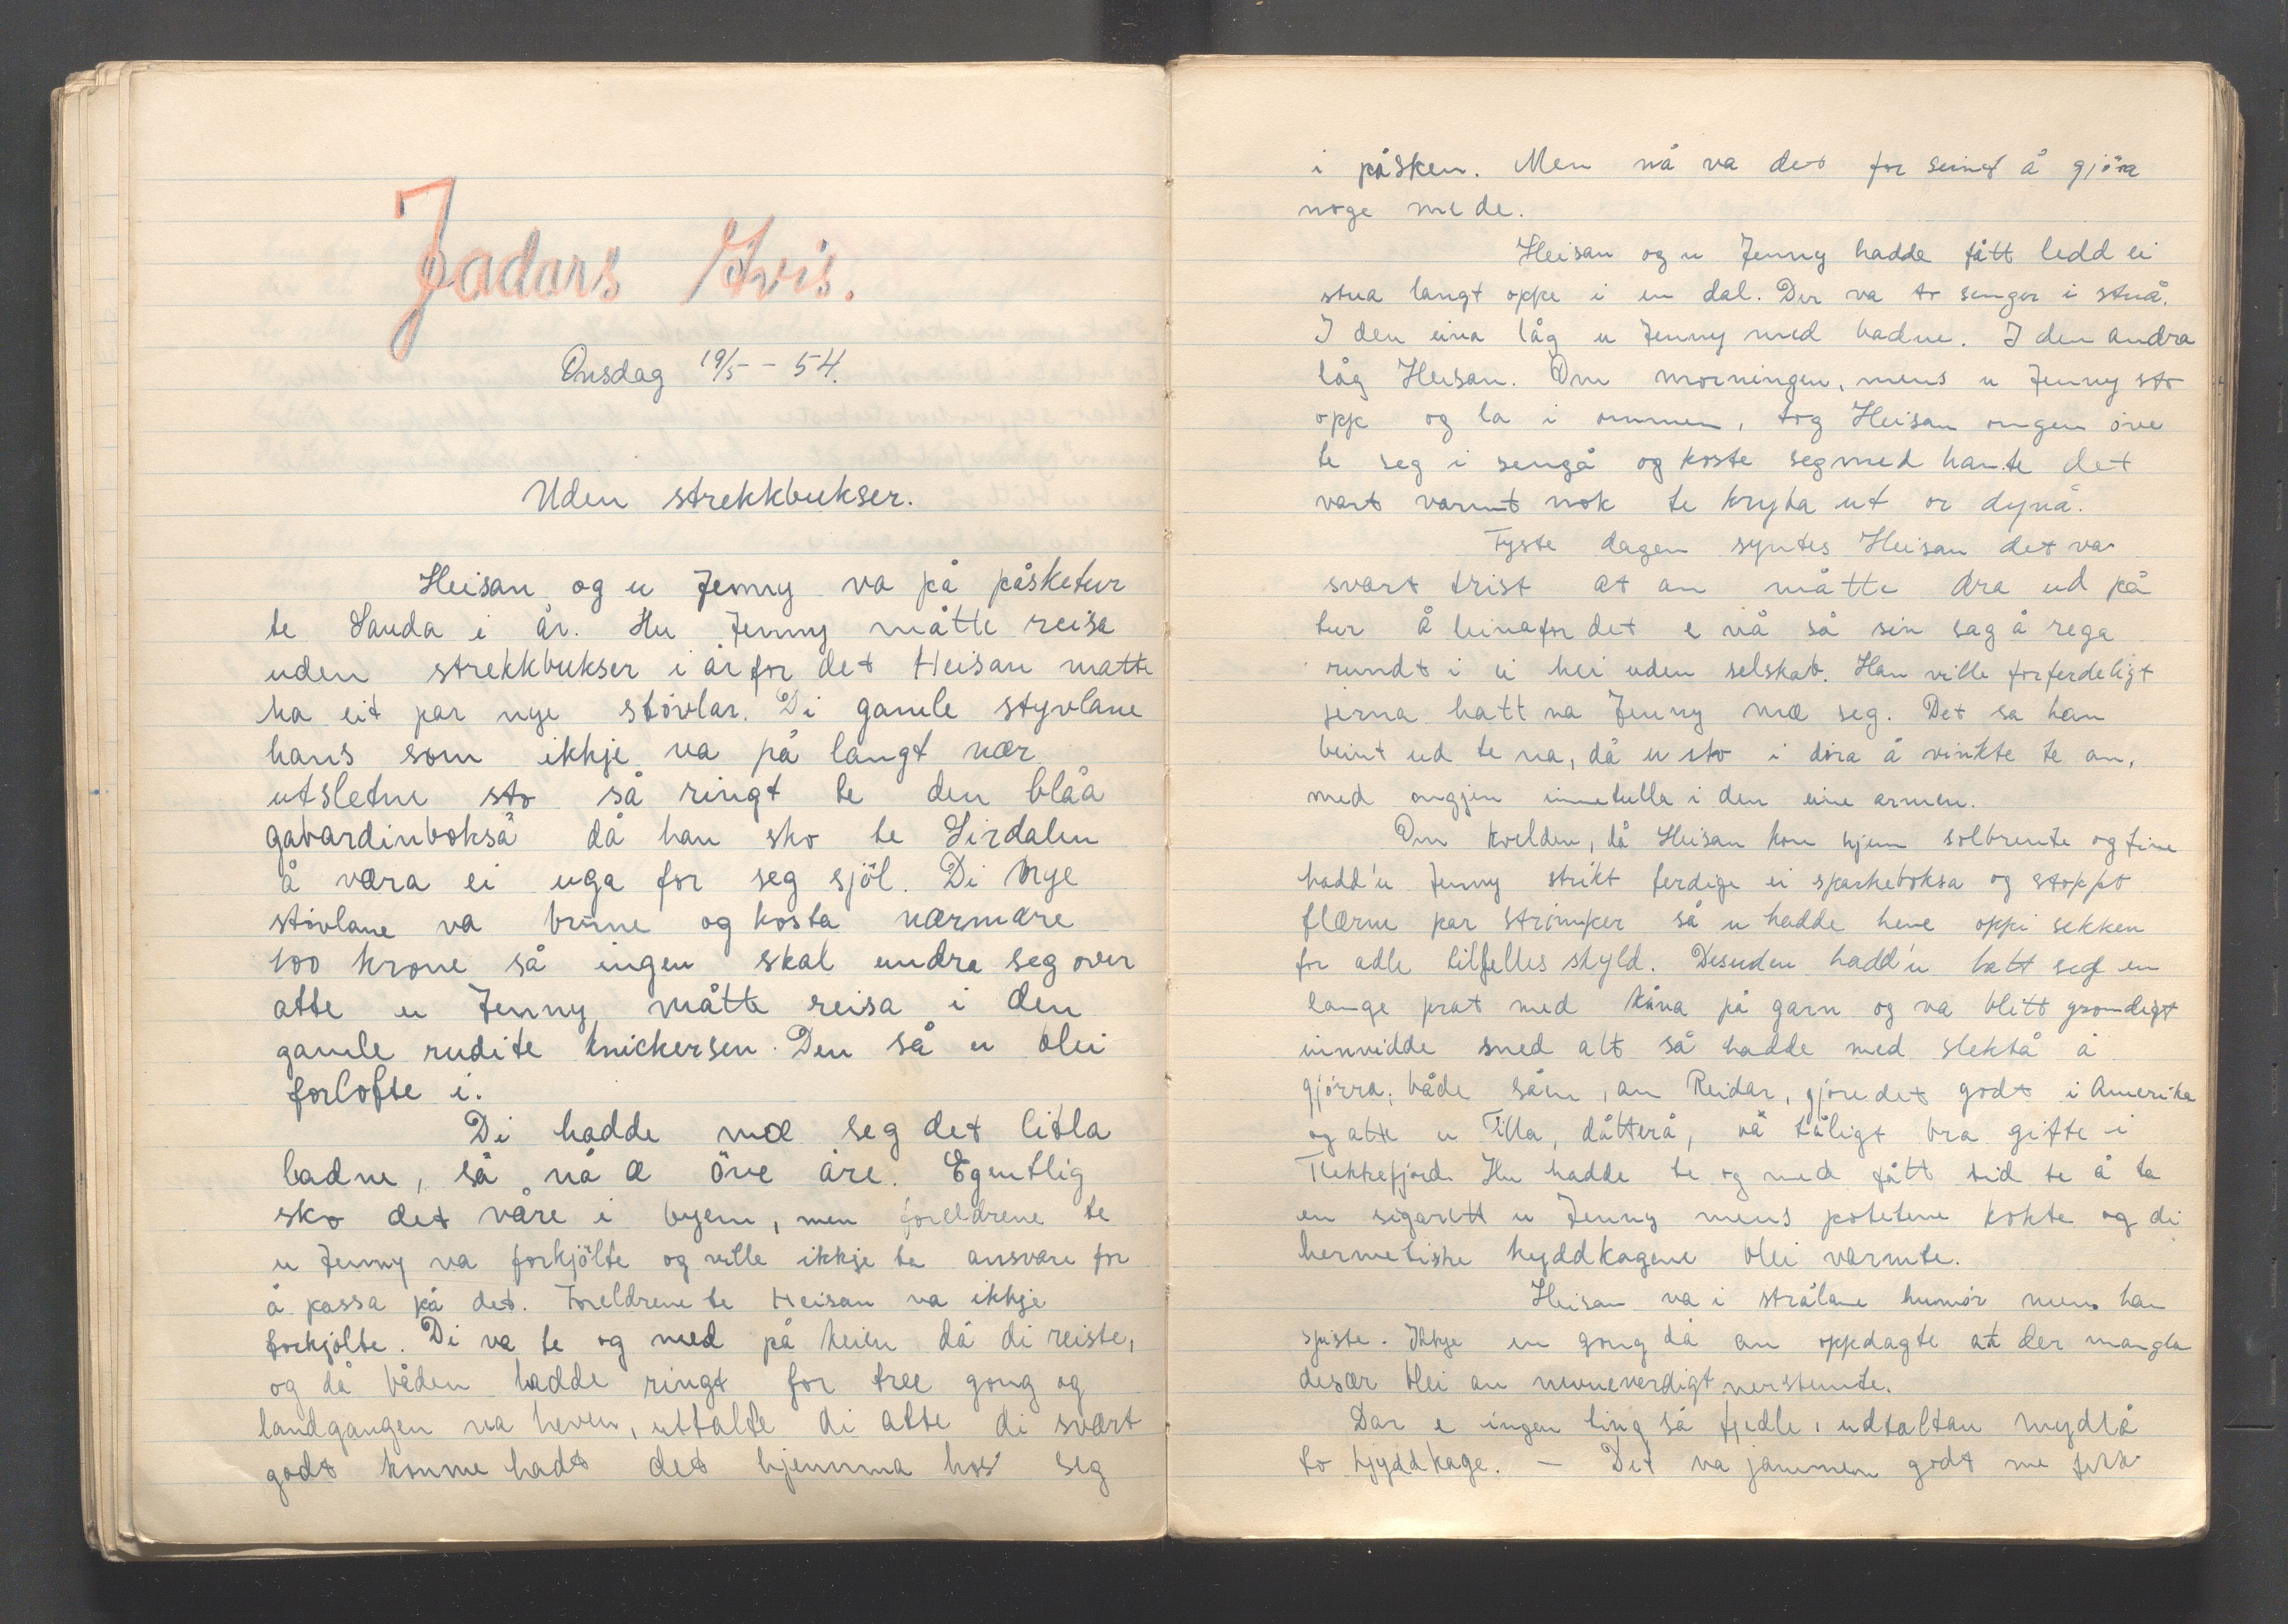 Jadars Avis.
Onsdag 19/5 - 54.
Uden strekkbukser.
Heisan og u Jenny va på påsketur
te Sauda i år. Hu Jenny måtte reisa
uden strekkbukser i år for det Heisan matte
ha eit par nye stövlar. Di gamle styvlane
hans som ikkje va på langt nær
utsletne sto så ringt te den blåa
gabardinbokså då han sko te Sirdalen
å væra ei uga for seg sjöl. Di nye
stövlane va brune og kosta nærmare
100 krone så ingen skal undra seg over
atte u Jenny måtte reisa i den
gamle rudite knickersen. Den så u blei
forlofte i.
Di hadde mæ seg det litla
badne, så nå æ öve åre. Egentlig
sko det våre i byen, men foreldrene te
u Jenny va forkjölte og ville ikkje ta ansvare for
å passa på det. Foreldrene te Heisan va ikkje
forkjölte. Di va te og med på keien då di reiste,
og då båden hadde ringt for tree gong og
landgangen va heven, uttalte di atte di svært
godt konne hadt det hjemma hos seg
i påsken. Men nå va det for seint å gjöra
noge me de.
Heisan og u Jenny hadde fått ledd ei
stua langt oppe i en dal. Der va to senger i stuå.
I den eina låg u Jenny med badne. I den andra
låg Heisan. Om morningen, mens u Jenny sto
opp og la i ommen, tog Heisan ongen öve
te seg i sengå og koste seg med han te det
vart varmt nok te kryba ut or dynå.
Fyste dagen syntes Heisan det va
svært trist at an måtte dra ud på
tur å leina for det e nå så sin sag å rega
rundt i ei hei uden selskab. Han ville forferdeligt
jerna hatt na Jenny mæ seg. Det sa han
beint ud te na, då u sto i döra å vinkte te an,
med ongjen innetulla i den eine armen.
Om kvelden, då Heisan kom hjem solbrente og fine
hadd'u Jenny strikt ferdige ei sparkeboksa og stoppt
flærne par strömper så u hadde heve oppi sekken
for adle tilfelles skyld. Desuden hadd'u hatt seg en
lange prat med kåna på garn og va blitt grondigt
innvidde med alt så hadde med slektå å
gjörra, både såm, an Reidar, gjöre det godt i Amerika
og atte u Tilla, dåtterå, va tåligt bra gifte i
Flekkefjord. Hu hadde te og med fått tid te å ta
en sigarett u Jenny mens potetene kokte og di
hermetiske kyddkagene blei varmte.
Heisan va i strålane humör mens han
spiste. Ikkje en gong då an oppdagte at der mangla
desær blei an nevneverdigt verstemte.
Dar e ingen ting så fjedle, udtaltan mydlå
to kjyddkage. — Det va jammen godt me fekk